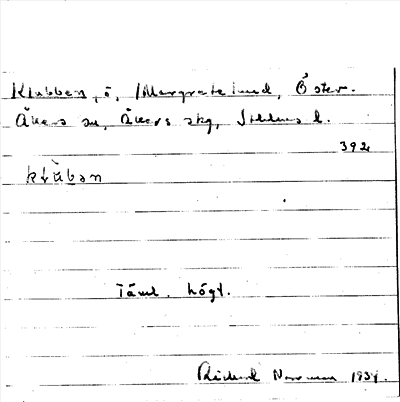 Klubben, ö, Margretelund, Öster-
Åkers sn, Åkers skg, Sthlms l.
392
klùbən
Täml. högt.
Rickard Norrman 1934.